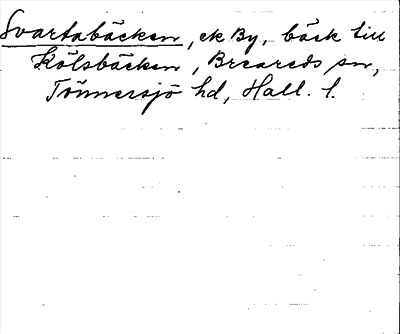 Svartabäcken, ek By, bäck till
Kölsbäcken, Breareds sn,
Tönnersjö hd, Hall. l.